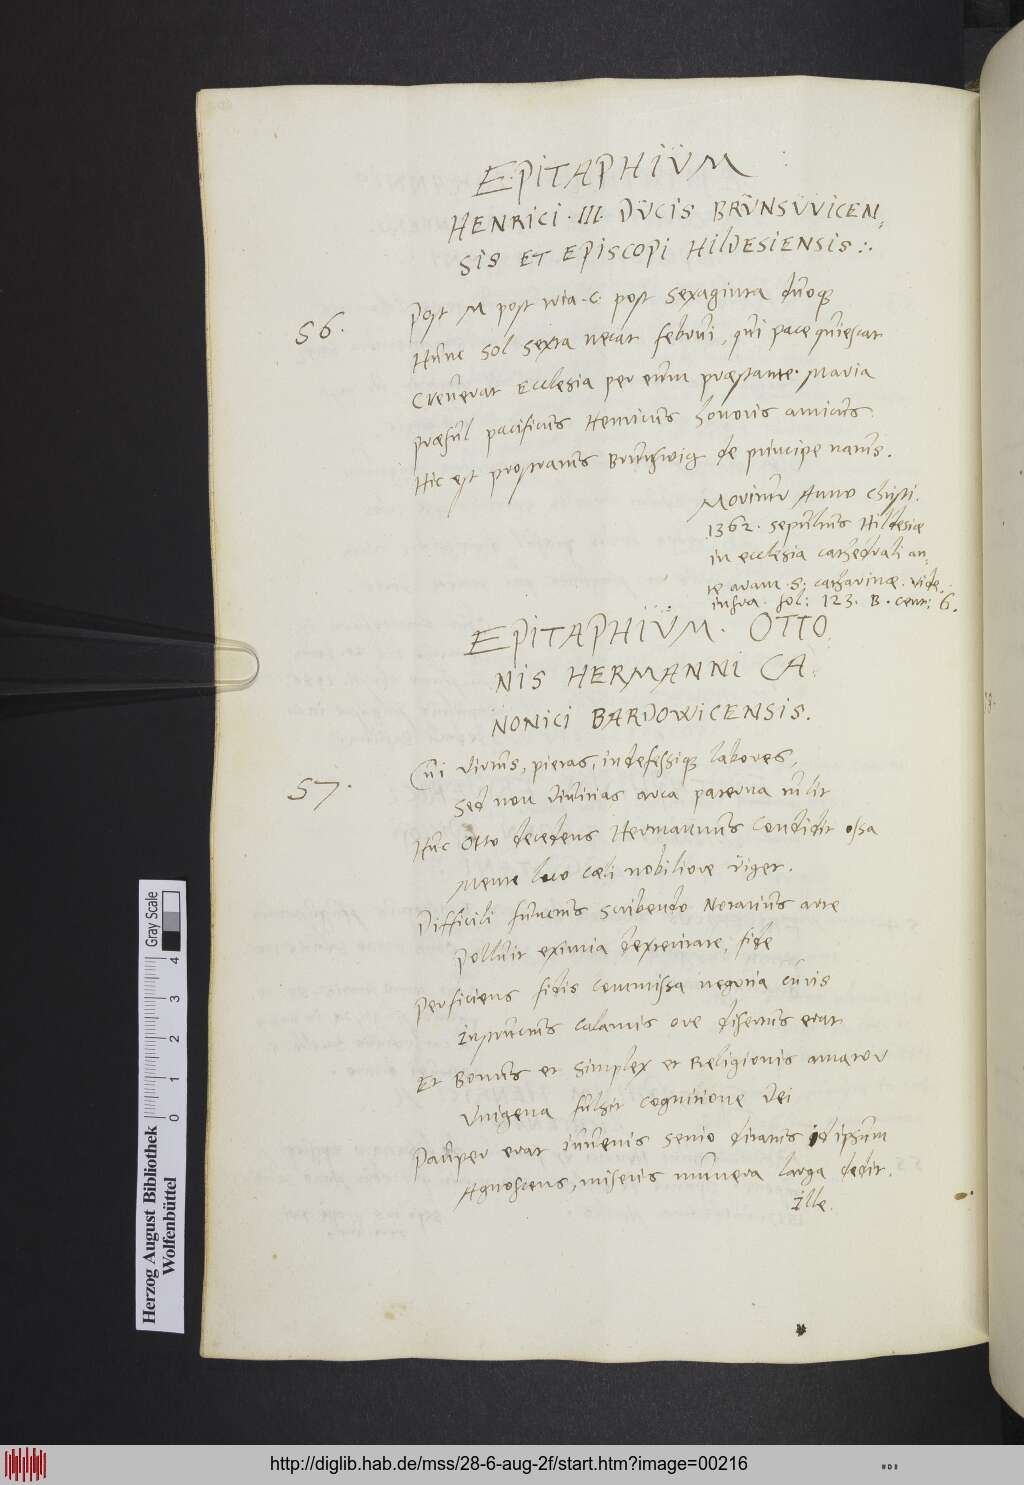 EPITAPHIUM
HENRICI . III. DUCIS BRUNSUVICEN,,
SIS ET EPISCOPI HILDESIENSIS :.
56.
Post M post tria . C . post sexaginta duoq3
Hunc sol sexta necat februi, qui pace quiescat
Creverat Ecclesia per eum præstante . Maria
Præsul pacificus Henricus honoris amicus.
Hic est prostratus Brunswig de principe natus.
Moritur Anno Christi.
1362. sepultus Hildesiæ
in ecclesia cathedrali an,,
te aram . S: catharinæ . vide.
infra . fol: 123. B . cent: 6.
EPITAPHIUM . OTTO
NIS HERMANNI CA.
NONICI BARDOWICENSIS.
57.
Cui virtus, pietas, indefessiq3 labores,
Sed non divitias arca paterna tulit
Huc Otto decedens Hermannus condidit ossa
Mente loco cæli nobiliore viget.
Difficili functus scribendo Notarius arte
Polluit eximia dexteritate, fide
Perficiens fidis commissa negotia curis
Instructus calamis ore disertus erat
Et Bonus et simplex et Religionis amator
Unigena fulsit cognitione dei
Pauper erat iuvenis senio ditatus idipsum
Agnoscens, miseris munera larga dedit.
Ille.
Herzog August Bibliothek
Wolfenbüttel
Gray Scale
0 1 2 3 4
http://diglib.hab.de/mss/28-6-aug-2f/start.htm?image=00216